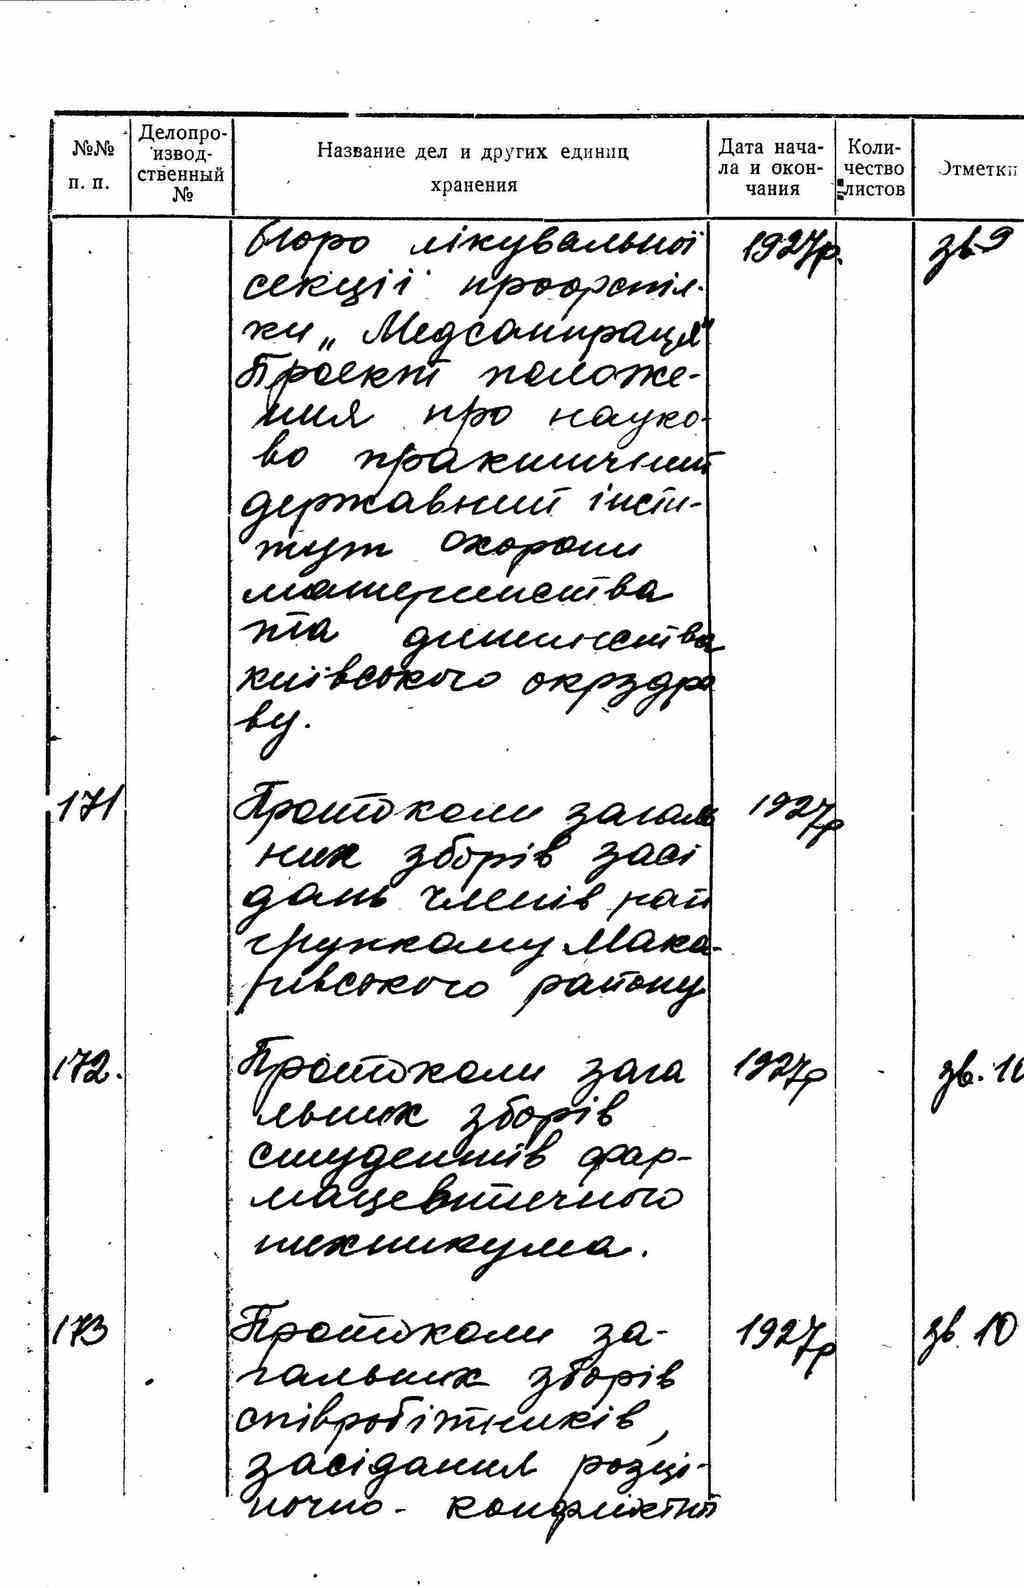 №№ п. п.
Делопро-
извод-
ственный
№
Название дел и других единиц
хранения
Дата нача-
ла и окон-
чания
Коли-
чество
листов
Отметки
бюро лікувальної 1927р. зв. 9
секції профспіл-
ки „Медсанпраця"
Проект положе-
ння про науко-
во практичний
державний інсти-
тут Охорони
материнства
та дитинства
київського окрздра
ву.
171 Протоколи загаль 1927р
них зборів засі
дань членів
Мака-
рівського району
172. Протоколи зага 1927р зв. 10
льних зборів
студентів фар-
мацевтичного
технікума.
173 Протоколи за- 1927р зв. 10
гальних зборів
співробітників,
засідання розці-
ночно - конфліктн